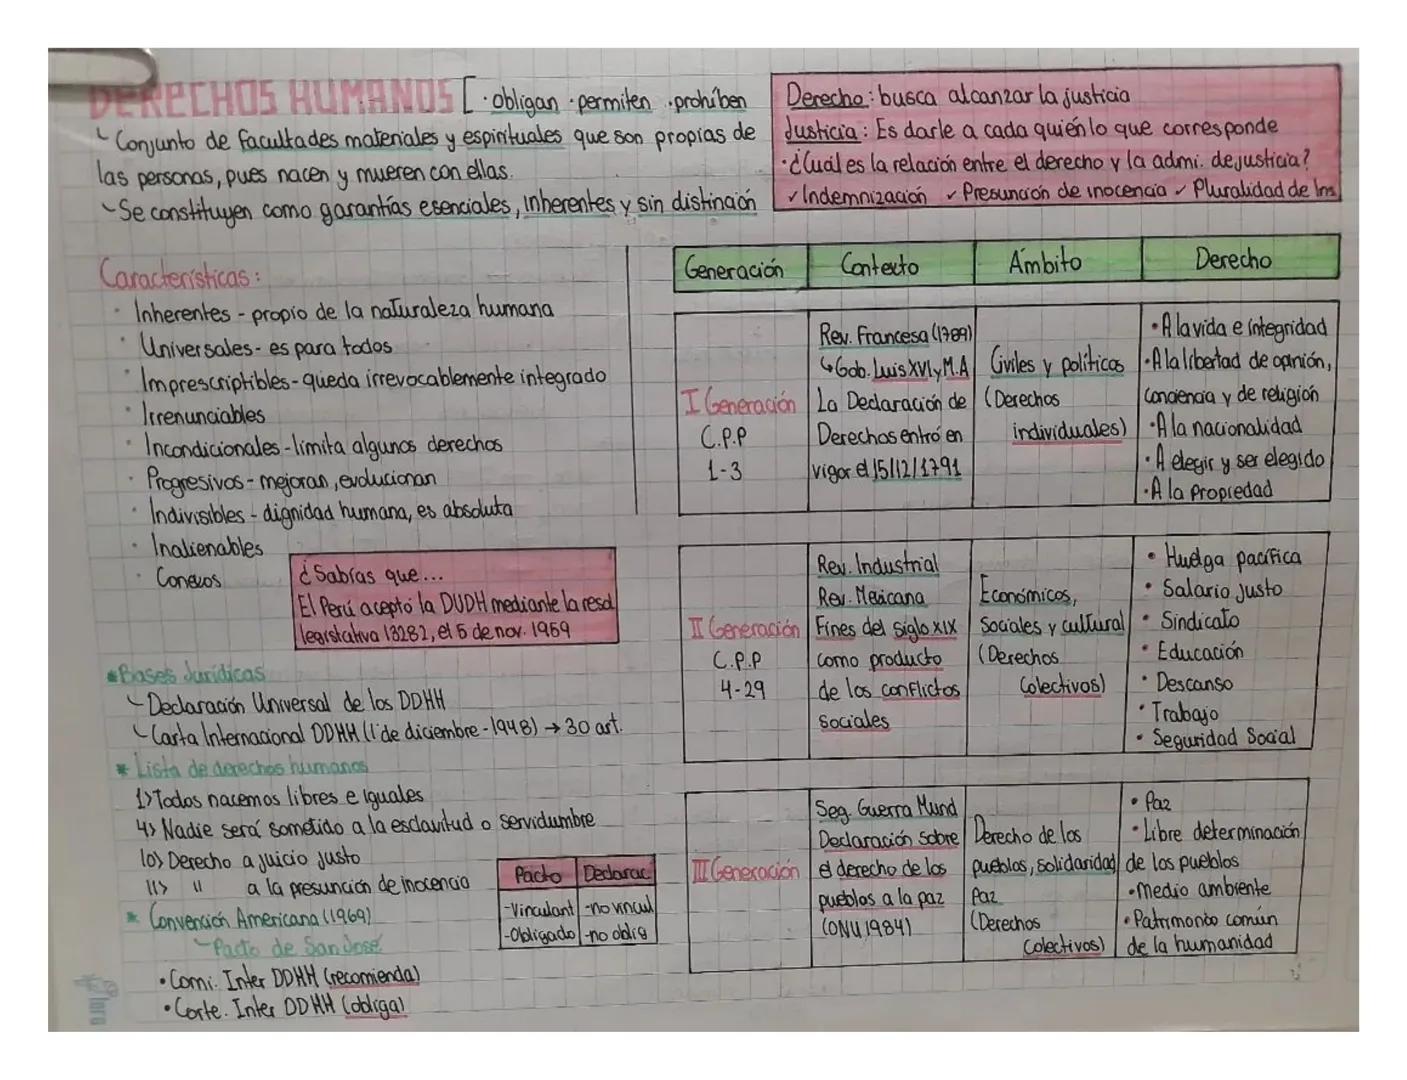 DERECHOS HUMANOS [ · obligan · permiten · prohiben
Conjunto de facultades materiales y espirituales que son propias de
las personas, pues nacen y mueren con ellas.
Se constituyen como garantías esenciales, inherentes y sin distinción
Derecho: busca alcanzar la justicia
Justicia: Es darle a cada quién lo que corresponde
· ¿Cuál es la relación entre el derecho y la admi. de justicia?
✓ Indemnización ✓ Presunción de inocencia ✓ Pluralidad de Ins
Características:
· Inherentes - propio de la naturaleza humana
· Universales - es para todos
· Imprescriptibles - queda irrevocablemente integrado
· Irrenunciables
· Incondicionales - limita algunos derechos
· Progresivos - mejoran, evolucionan
· Indivisibles - dignidad humana, es absoluta
· Inalienables
· Conexos
¿Sabías que...
El Perú aceptó la DUDH mediante la resol
legistativa 13282, el 5 de nov. 1959
* Bases Jurídicas
Declaración Universal de los DDHH
Carta Internacional DDHH (1 de diciembre - 1948) → 30 art.
* Lista de derechos humanos
1> Todos nacemos libres e iguales
4> Nadie será sometido a la esclavitud o servidumbre
10> Derecho a juicio justo
11> " a la presunción de inocencia
* Convención Americana (1969)
Pacto de San José
• Comi. Inter DDHH (recomienda)
• Corte. Inter DDHH (obliga)
Pacto Declarac.
- Vinculant - no vincul
- Obligado - no oblig
Generación Contexto Ámbito Derecho
I Generación
C.P.P
1-3
Rev. Francesa (1789)
↳ Gob. Luis XVI y M.A
La Declaración de
Derechos entró en
vigor el 15/12/1791
Civiles y políticos
(Derechos
individuales)
• A la vida e integridad
• A la libertad de opinión,
conciencia y de religión
• A la nacionalidad
• A elegir y ser elegido
• A la propiedad
II Generación
C.P.P
4-29
Rev. Industrial
Rev. Mexicana
Fines del siglo XIX
como producto
de los conflictos
sociales
Económicos,
Sociales y cultural
(Derechos
Colectivos)
• Huelga pacífica
• Salario justo
• Sindicato
• Educación
• Descanso
• Trabajo
• Seguridad Social
III Generación
Seg. Guerra Mund
Declaración sobre
el derecho de los
pueblos a la paz
(ONU 1984)
Derecho de los
pueblos, solidaridad
Paz
(Derechos
Colectivos)
• Paz
• Libre determinación
de los pueblos
• medio ambiente
• Patrimonio común
de la humanidad
loro